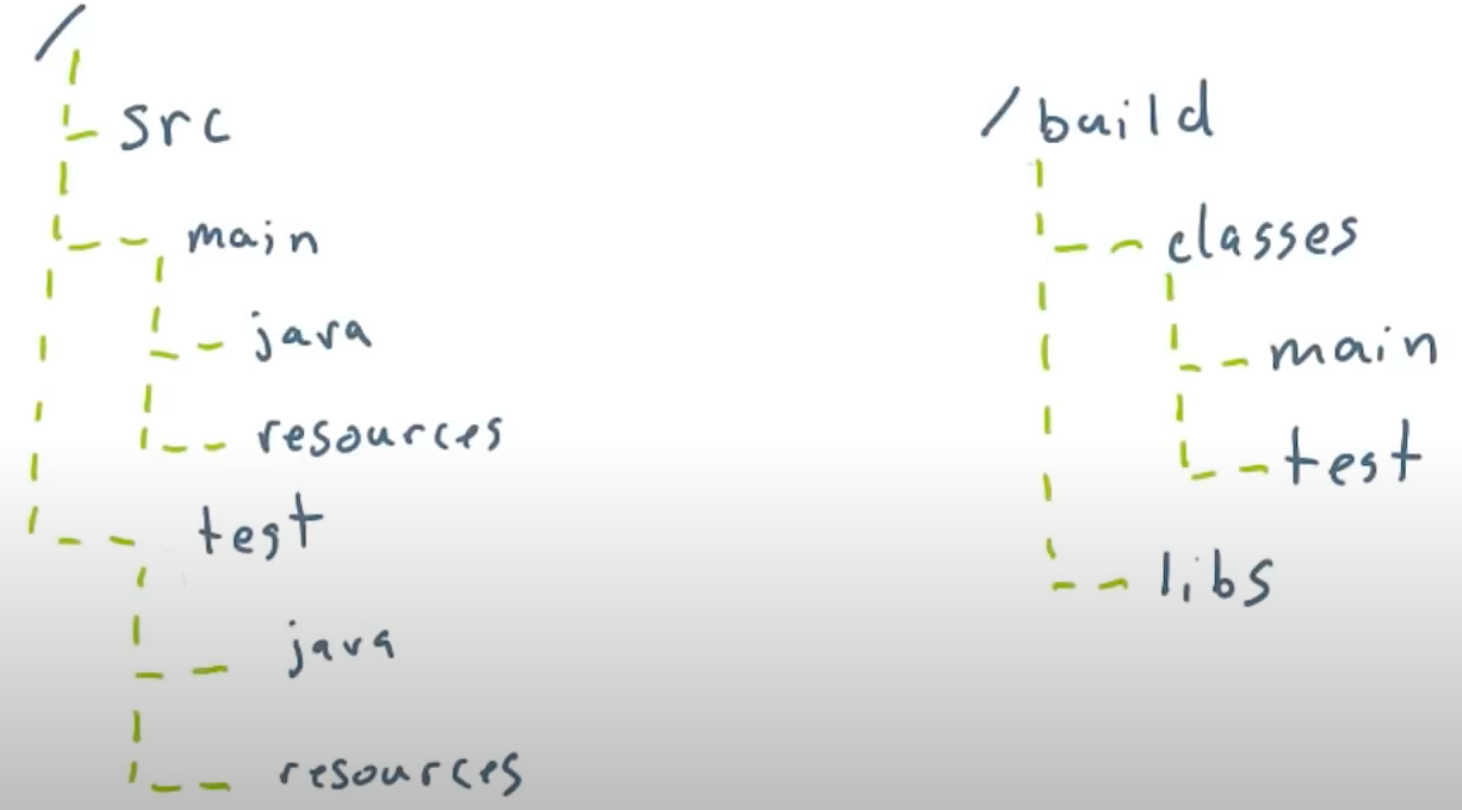 /
src
main
java
resources
test
java
resources
/build
classes
main
test
libs